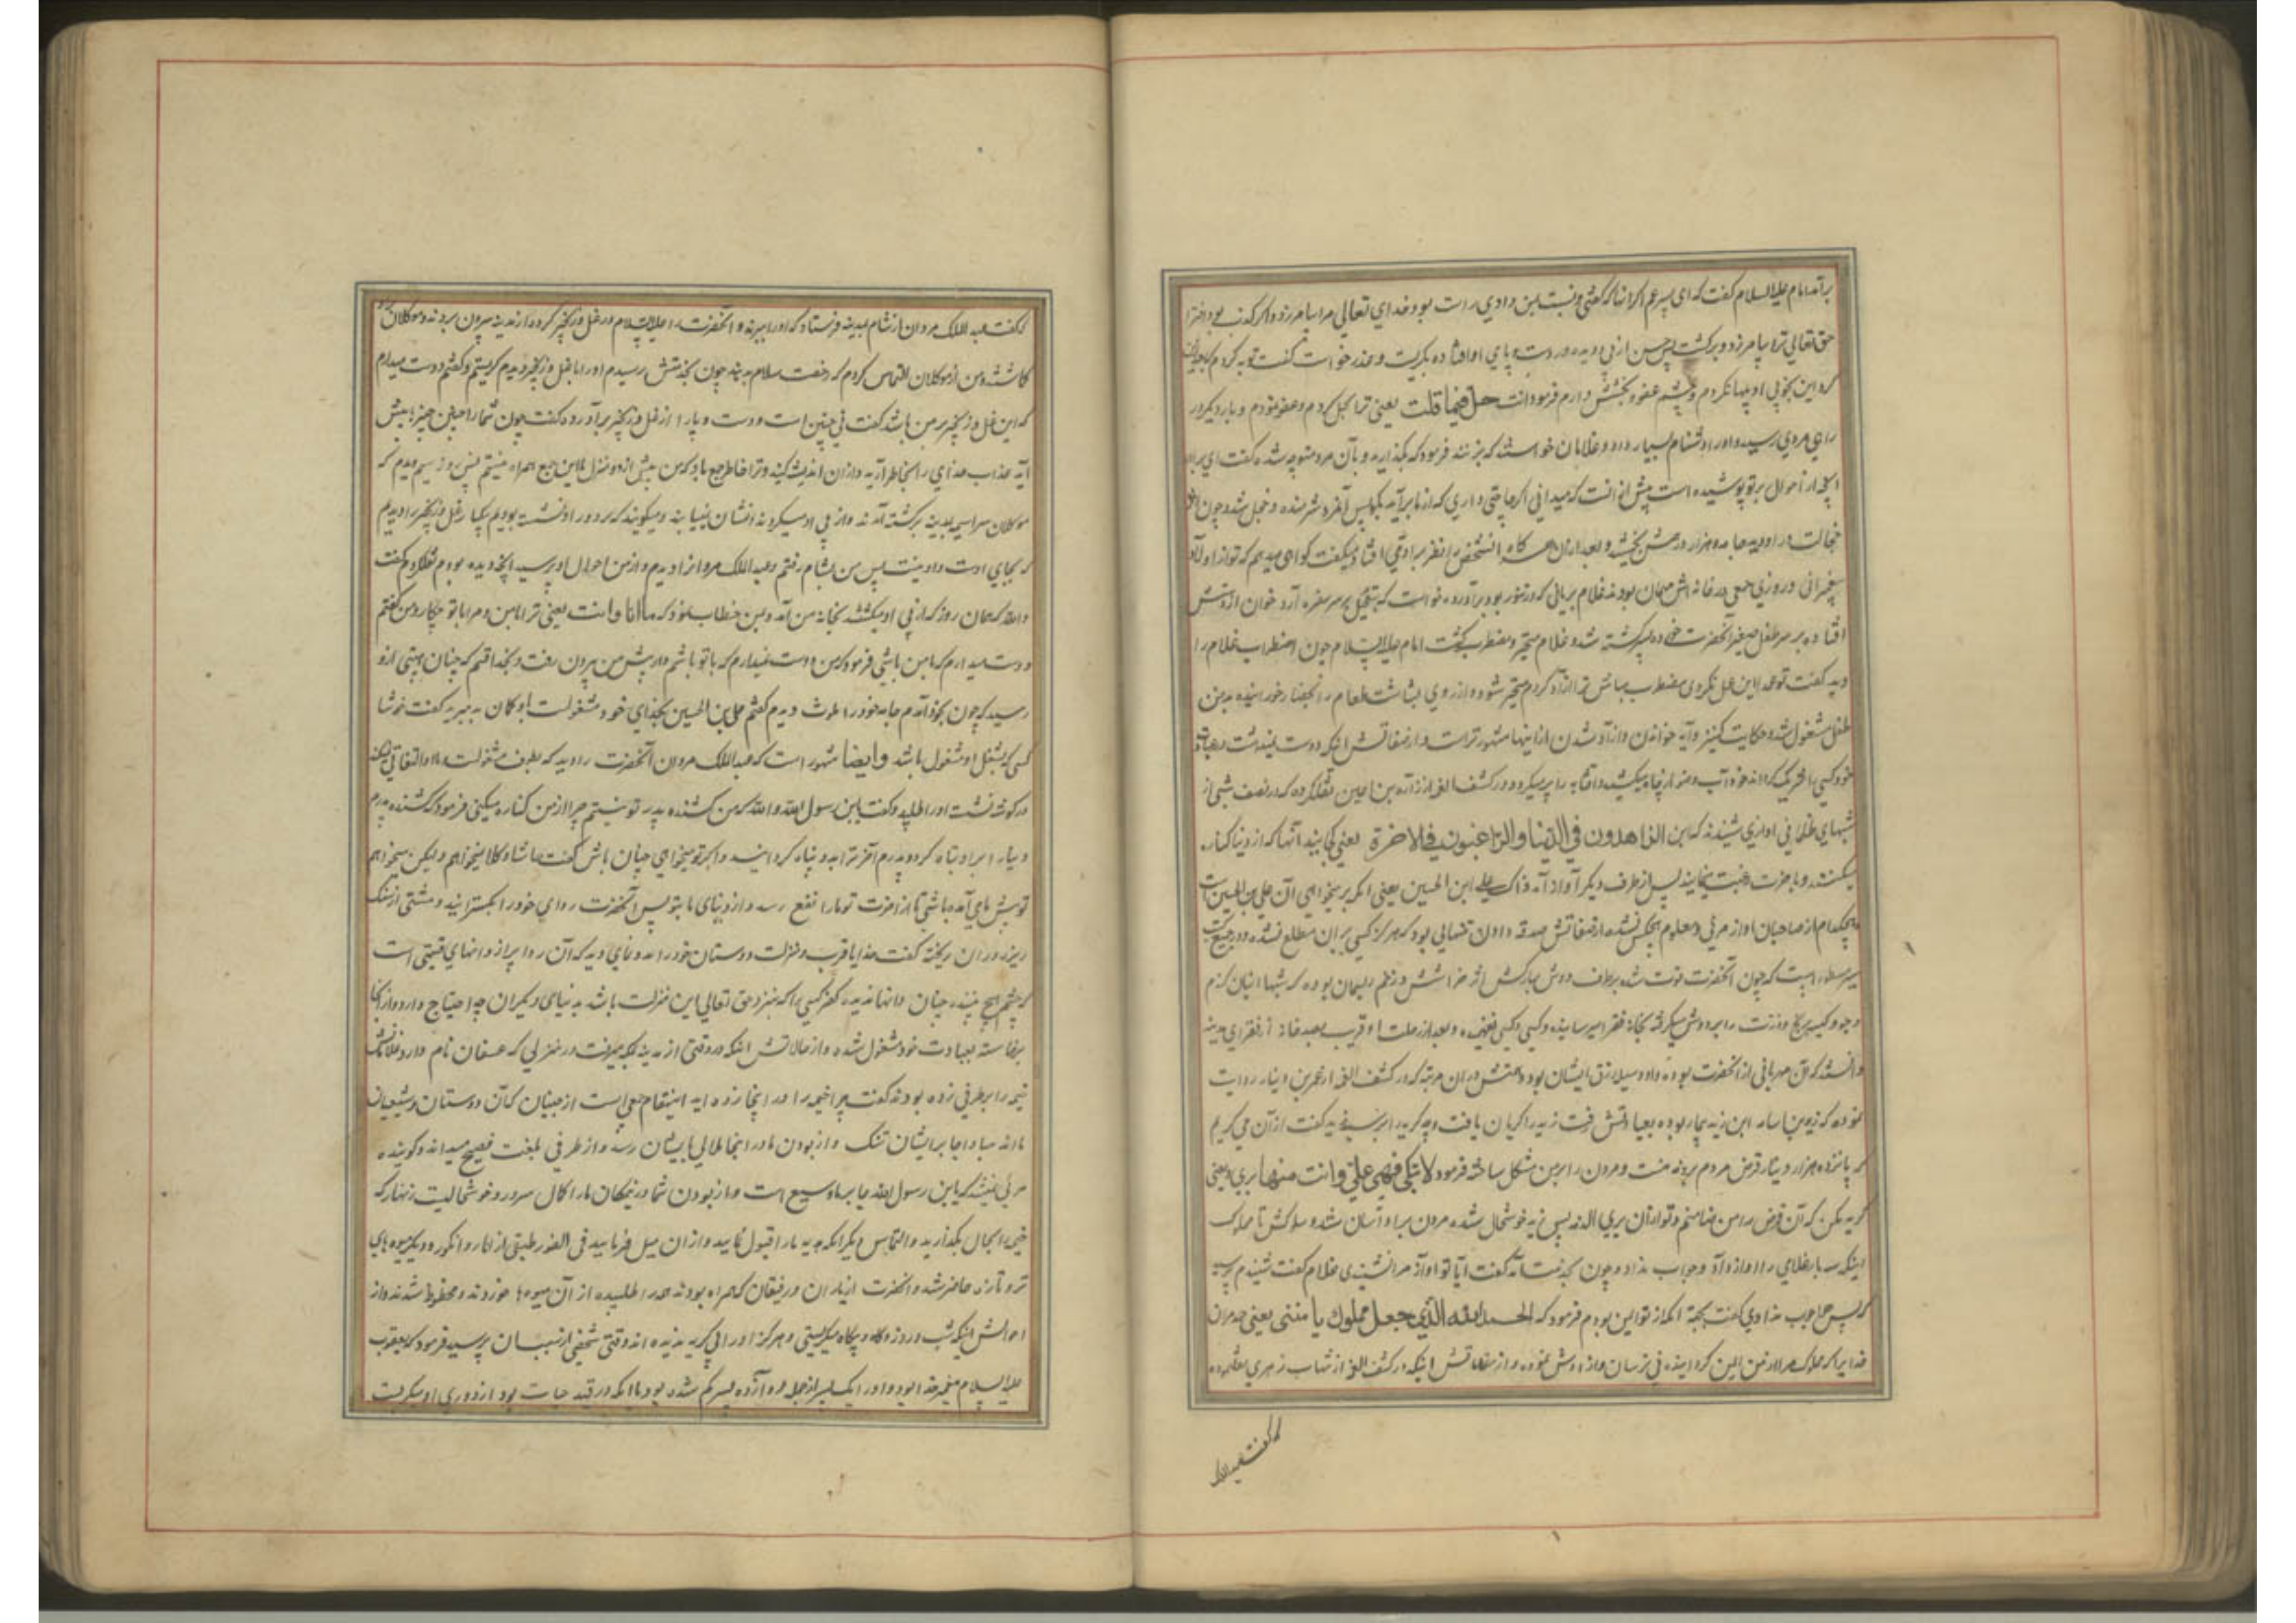 برآمد امام علیه السلام گفت که ای پسر عم اگر آنها که گفتی و نسبت بمن دادی راست بود خدای تعالی مرا بیامرزد و اگر کذب بود
حق تعالی ترا بیامرزد و برگشت پس حسن از پی او دویده در دست و پای او افتاده بگریست و عذر خواست گفت توبه کردم
که این بخوبی او و چشم عفو و بخشش دارم فرمود انت حل فیما قلت یعنی ترا بحل کردم و عفو نمودم و بار دیگر در
راهی مردی رسید و او را دشنام بسیار داد و غلامان خواستند که بزنند فرمود که بگذارید و بآن مرد متوجه شده گفت ای برادر
آنچه از احوال بر تو پوشیده است بیش از آنست که میدانی اگر حاجتی داری که از ما برآید بگو پس آنمرد شرمنده و خجل شد و چون
خجالت در او دید جامه و هزار درمش بخشید و بعد از آن هر گاه آن شخص را نظر بر او می افتاد میگفت گواهی میدهم که تو از اولاد
پیغمبرانی و روزی جمعی در خانه اش مهمان بودند غلام بریانی که در تنور بود برآورده خواست که بتعجیل بر سر سفره آرد خوان از دستش
افتاده بر سر طفل صغیر آنحضرت خورده کشته شد و غلام متحیر و مضطرب گشت امام علیه السلام چون اضطراب غلام را
دید گفت تو عمدا این عمل نکردی مضطرب مباش ترا آزاد کردم متحیر شو و از روی بشاشت طعام را بحضار خورانیده بدفن
طفل مشغول شد و حکایت کنیز و آیه خواندن و آزاد شدن از اینها مشهورتر است و از صفاتش آنکه دوست نمیداشت
خود کسی را شریک گرداند خود آب وضو از چاه میکشید و آفتابه را پر میکرد و در کشف الغمه از زراره بن اعین نقل کرده که در نصف شبی از
شبهای ظلمانی آوازی شنیدند که این الزاهدون فی الدنیا و الراغبون فی الاخرة یعنی کجایند آنها که از دنیا کناره
میکنند و باخرت رغبت مینمایند پس از طرف دیگر آواز آمد ذاک علی ابن الحسین یعنی اگر میخواهی آن علی بن الحسین است
هیچکدام از صاحبان آواز مرئی و معلوم هیچکس نشد و از صفاتش صدقه دادن پنهانی بود که هرگز کسی بر آن مطلع نشد و در جمیع کتب
سیر مسطور است که چون آنحضرت فوت شد بر طرف دوش مبارکش اثر خراشش و زخم ریسمان بوده که شبها انبان گندم
و جو و کیسه برنج و زینت را بر دوش میگرفته بخانه فقرا میرسانیده و کسی نفهمیده و بعد از رحلت او قریب بصد خانه از فقرای مدینه
دانستند که آن مهربانی از آنحضرت بوده و او وسیله رزق ایشان بوده و در آن مرتبه که در کشف الغمه از عمر بن دینار روایت
نموده که زید بن اسامه ابن زید بیمار بوده بعیادتش رفت زید را گریان یافت وجه گریه از او پرسید گفت از آن می گریم
که پانزده هزار دینار قرض مردم بر ذمه منست و مردن را بر من مشکل ساخته فرمود لا تبکی فهی علی و انت منها بری یعنی
گریه مکن که آن قرض را من ضامنم و تو از آن بری الذمه پس زید خوشحال شده مردن بر او آسان شد
اینکه سه بار غلامی را آواز داد و جواب نداد و چون بخدمت آمد گفت آیا تو آواز مرا نشنیدی غلام گفت شنیدم پرسید
که پس چرا جواب ندادی گفت بجهة آنکه از تو ایمن بودم فرمود که الحمد لله الذی جعل مملوک یامننی یعنی حمد مر آن
خدایرا که مملوک مرا از من ایمن گردانیده و از صفاتش اینکه در کشف الغمه از شهاب زهری نقل نموده
که گفت عبد الملک
که گفت عبد الملک مروان از شام بمدینه فرستاد که او را ببرند و آنحضرت را علیه السلام در غل و زنجیر کرده از مدینه بیرون بردند و موکلان
گماشتند و من از موکلان التماس کردم که رخصت سلام بدهند چون بخدمتش رسیدم او را با غل و زنجیر دیدم گریستم و گفتم دوست میدارم
که این غل و زنجیر بر من باشد گفت نی چنین است و دست و پا را از غل و زنجیر برآورده گفت چون شما را چنین چیزها پیش
آید عذاب خدای را بخاطر آرید و از آن اندیشه کنید و ترا خاطر جمع باد که من بیش از دو منزل با این جمع همراه نیستم پس روز سیم دیدم که
موکلان سراسیمه بمدینه برگشته آمدند و از پی او میگردند و نشان نمییابند و میگویند که بر دور او نشسته بودیم یکبار غل و زنجیر را دیدیم
که بجای اوست و او نیست پس من بشام رفتم و عبد الملک مروان را دیدم و از من احوال او پرسید آنچه دیده بودم نقل کردم گفت
والله که همان روز که از پی او میگشتند بخانه من آمد و بمن خطاب نمود که ما انا و انت یعنی ترا با من و مرا با تو چکار و من گفتم
دوست میدارم که با من باشی فرمود که من دوست نمیدارم که با تو باشم و از پیش من بیرون رفت و بخدا قسم که چنان هیبتی از او
رسید که چون بخود آمدم جامه خود را ملوث دیدم گفتم علی بن الحسین بخدای خود مشغولست او گمان بد مبر گفت خوشا
کسی که بشغل او مشغول باشد و ایضا مشهور است که عبد الملک مروان آنحضرت را دید که بطواف مشغولست و با او التفاتی نمیکند
در گوشه نشست او را طلبید و گفت یابن رسول الله والله که من کشنده پدر تو نیستم چرا از من کناره میکنی فرمود که کشنده پدرم
دنیا را بر او تباه کرد و پدرم آخرت را بدو تباه گردانید و اگر تو میخواهی چنان باش گفت حاشا و کلا نمیخواهم و لیکن میخواهم
تو پیش ما می آمده باشی تا از آخرت تو ما را نفع رسد و از دنیای ما بتو پس آنحضرت ردای خود را بگسترانید و مشتی از سنگ
ریزه در آن ریخته گفت خدایا قرب و منزلت دوستان خود را بدو نمای دید که آن ردا پر از دانهای قیمتی است
که چشم هیچ بیننده چنان دانها ندیده گفت کسی را که نزد حق تعالی این منزلت باشد بدنیای دیگران چه احتیاج دارد و از آنجا
برخاسته بعبادت خود مشغول شد و از حالاتش اینکه در وقتی از مدینه بمکه میرفت در منزلی که عسفان نام دارد غلامانش
خیمه را بر طرفی زده بودند گفت چرا خیمه را در اینجا زده اید اینمقام جمعی است از جنیان که آن دوستان و شیعیان
مااند مبادا جا بر ایشان تنگ و از بودن ما در اینجا ملالی بایشان رسد و از طرفی بلغت فصیح صدا آمد و گوینده
مرئی نمیشد که یابن رسول الله جا بر ما وسیع است و از بودن شما درینمکان ما را کمال سرور و خوشحالیست زنهار که
خیمه را بحال بگذارید و التماس دیگر آنکه هدیه ما را قبول نمایید و از آن میل فرمایید فی الفور طبقی از انار و انگور و دیگر میوه های
تر و تازه حاضر شد و آنحضرت از یاران و رفیقان که همراه بودند همه را طلبیده از آن میوه ها خوردند و محظوظ شدند و از
احوالش اینکه شب و روز و گاه و بیگاه میگریستی و هرگز او را بی گریه ندیده اند وقتی شخصی از سبب آن پرسید فرمود که یعقوب
علیه السلام پیغمبر خدا بود و او را یک پسر از جمله دوازده پسر گم شده بود با آنکه در قید حیات بود از دوری او میگریست